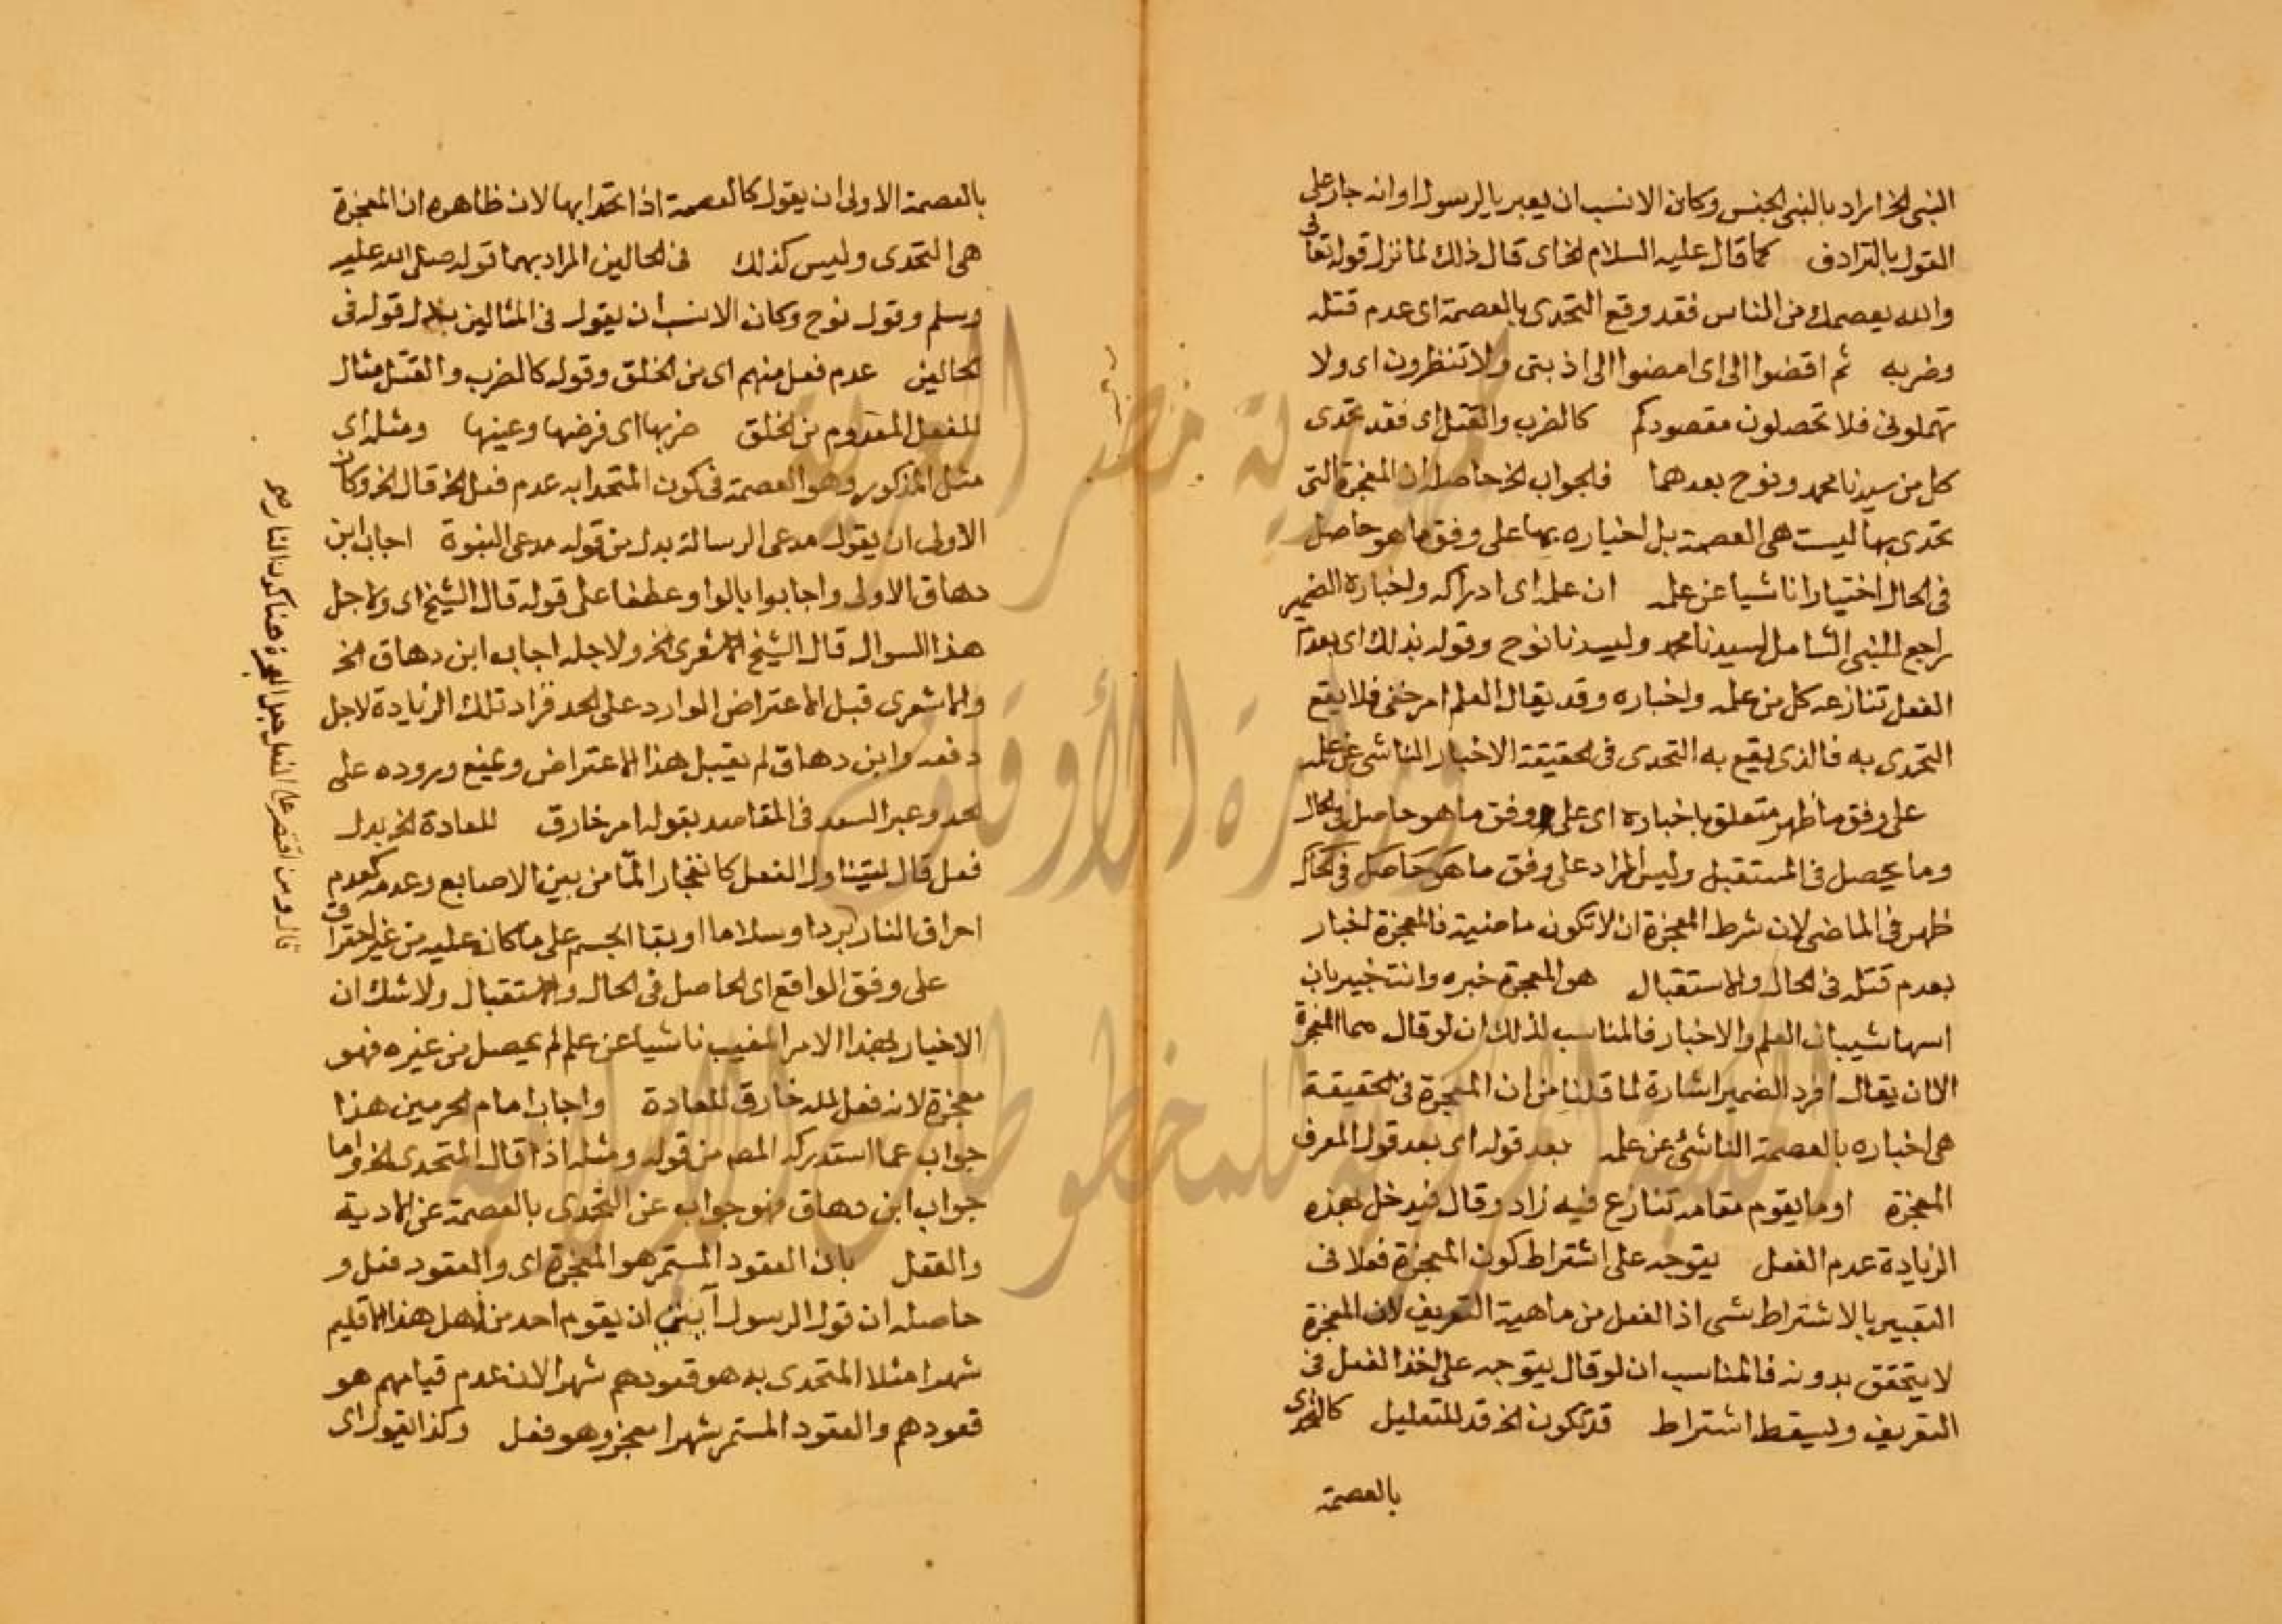 النبي الخ اراد بالنبي الجنس وكان الانسب ان يعبر بالرسول او انه جار على
القول بالترادف كما قال عليه السلام الخ اي قال ذلك لما نزل قوله تعالى
والله يعصمك من الناس فقد وقع التحدي بالعصمة اي عدم قتله
وضربه ثم اقضوا الى اي امضوا الى اذيتي ولا تنظرون اي ولا
تمهلوني فلا تحصلون مقصودكم كالضرب والقتل اي فقد تحدى
كل من سيدنا محمد ونوح بعدهما فالجواب الخ حاصله ان المعجزة التي
تحدى بها ليست هي العصمة بل اخباره بها على وفق ما هو حاصل
في الحال اختيارا ناشيا عن علمه ان علمه اي ادراكه واخباره الضمير
راجع للنبي الشامل لسيدنا محمد ولسيدنا نوح وقوله بذلك اي بعدم
الفعل تنازعه كل من علمه واخباره وقد يقال العلم امر خفي فلا يقع
التحدي به فالذي يقع به التحدي في الحقيقة الاخبار الناشي عن علمه
على وفق ما ظهر متعلق باخباره اي على وفق ما هو حاصل في الحال
وما يحصل في المستقبل وليس المراد على وفق ما هو حاصل في الحال
ظهر في الماضي لان شرط المعجزة ان لا تكون ماضية فالمعجزة اخبار
بعدم قتله في الحال والاستقبال هو المعجزة خبره وانت خبير بان
اسمها شيان العلم والاخبار فالمناسب لذلك ان لو قال هما المعجزة
الا ان يقال افرد الضمير اشارة لما قلنا من ان المعجزة في الحقيقة
هي اخباره بالعصمة الناشئ عن علمه بعد قوله اي بعد قول المعرف
المعجزة او ما يقوم مقامه تنازع فيه زاد وقال فيدخل بهذه
الزيادة عدم الفعل يتوجه على اشتراط كون المعجزة فعلا في
التعبير بالاشتراط شي اذ الفعل من ماهية التعريف لان المعجزة
لا يتحقق بدونه فالمناسب ان لو قال يتوجه على اخذ الفعل في
التعريف وليسقط اشتراط قد تكون الخ قد للتعليل كالتحدي
بالعصمة
بالعصمة الاولى ان يقول كالعصمة اذا تحدا بها لان ظاهره ان المعجزة
هي التحدي وليس كذلك في الحالين المراد بهما قوله صلى الله عليه
وسلم وقول نوح وكان الانسب ان يقول في المثالين بدل قوله في
الحالين عدم فعل منهم اي من الخلق وقوله كالضرب والقتل مثال
للفعل المعدوم من الخلق ضربها اي فرضها وعينها ومثله اي
مثل المذكور وهو العصمة في كون المتحدا به عدم فعل الخ قال الخ وكان
الاولى ان يقول مدعي الرسالة بدل من قوله مدعي النبوة اجاب ابن
دهاق الاولى واجابوا بالواو عطفا على قوله قال الشيخ اي ولاجل
هذا السوال قال الشيخ الاشعري الخ ولاجله اجاب ابن دهاق الخ
والاشعري قبل الاعتراض الوارد على الحد فزاد تلك الزيادة لاجل
دفعه وابن دهاق لم يقبل هذا الاعتراض ويمنع وروده على
الحد وعبر السعد في المقاصد بقوله امر خارق للعادة الخ بدل
فعل قال ليتناول الفعل كانفجار الما من بين الاصابع وعدمه كعدم
احراق النار بردا وسلاما او بقا الجسم على ما كان عليه من غير احتراق
على وفق الواقع اي الحاصل في الحال والاستقبال ولا شك ان
الاخبار بهذا الامر المغيب ناشيا عن علم لم يحصل من غيره فهو
معجزة لانه فعل لله خارق للعادة واجاب امام الحرمين هذا
جواب عما استدركه المص من قوله ومثله اذا قال المتحدي الخ واما
جواب ابن دهاق فهو جواب عن التحدي بالعصمة عن الاذية
والقتل بان القعود المستمر هو المعجزة اي والقعود فعل و
حاصله ان قول الرسول آيتي ان يقوم احد من اهل هذا الاقليم
شهرا مثلا المتحدى به هو قعودهم شهرا لان عدم قيامهم هو
قعودهم والقعود المستمر شهرا معجز وهو فعل وكذا يقول اي
قال ومن اقتصر على الفعل جعل المعجزة هنا كون النار